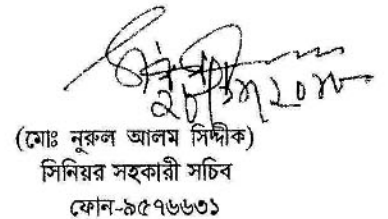 (মোঃ নূরুল আলম সিদ্দীক)
সিনিয়র সহকারী সচিব
ফোন-৯৫৭৬৬৩১